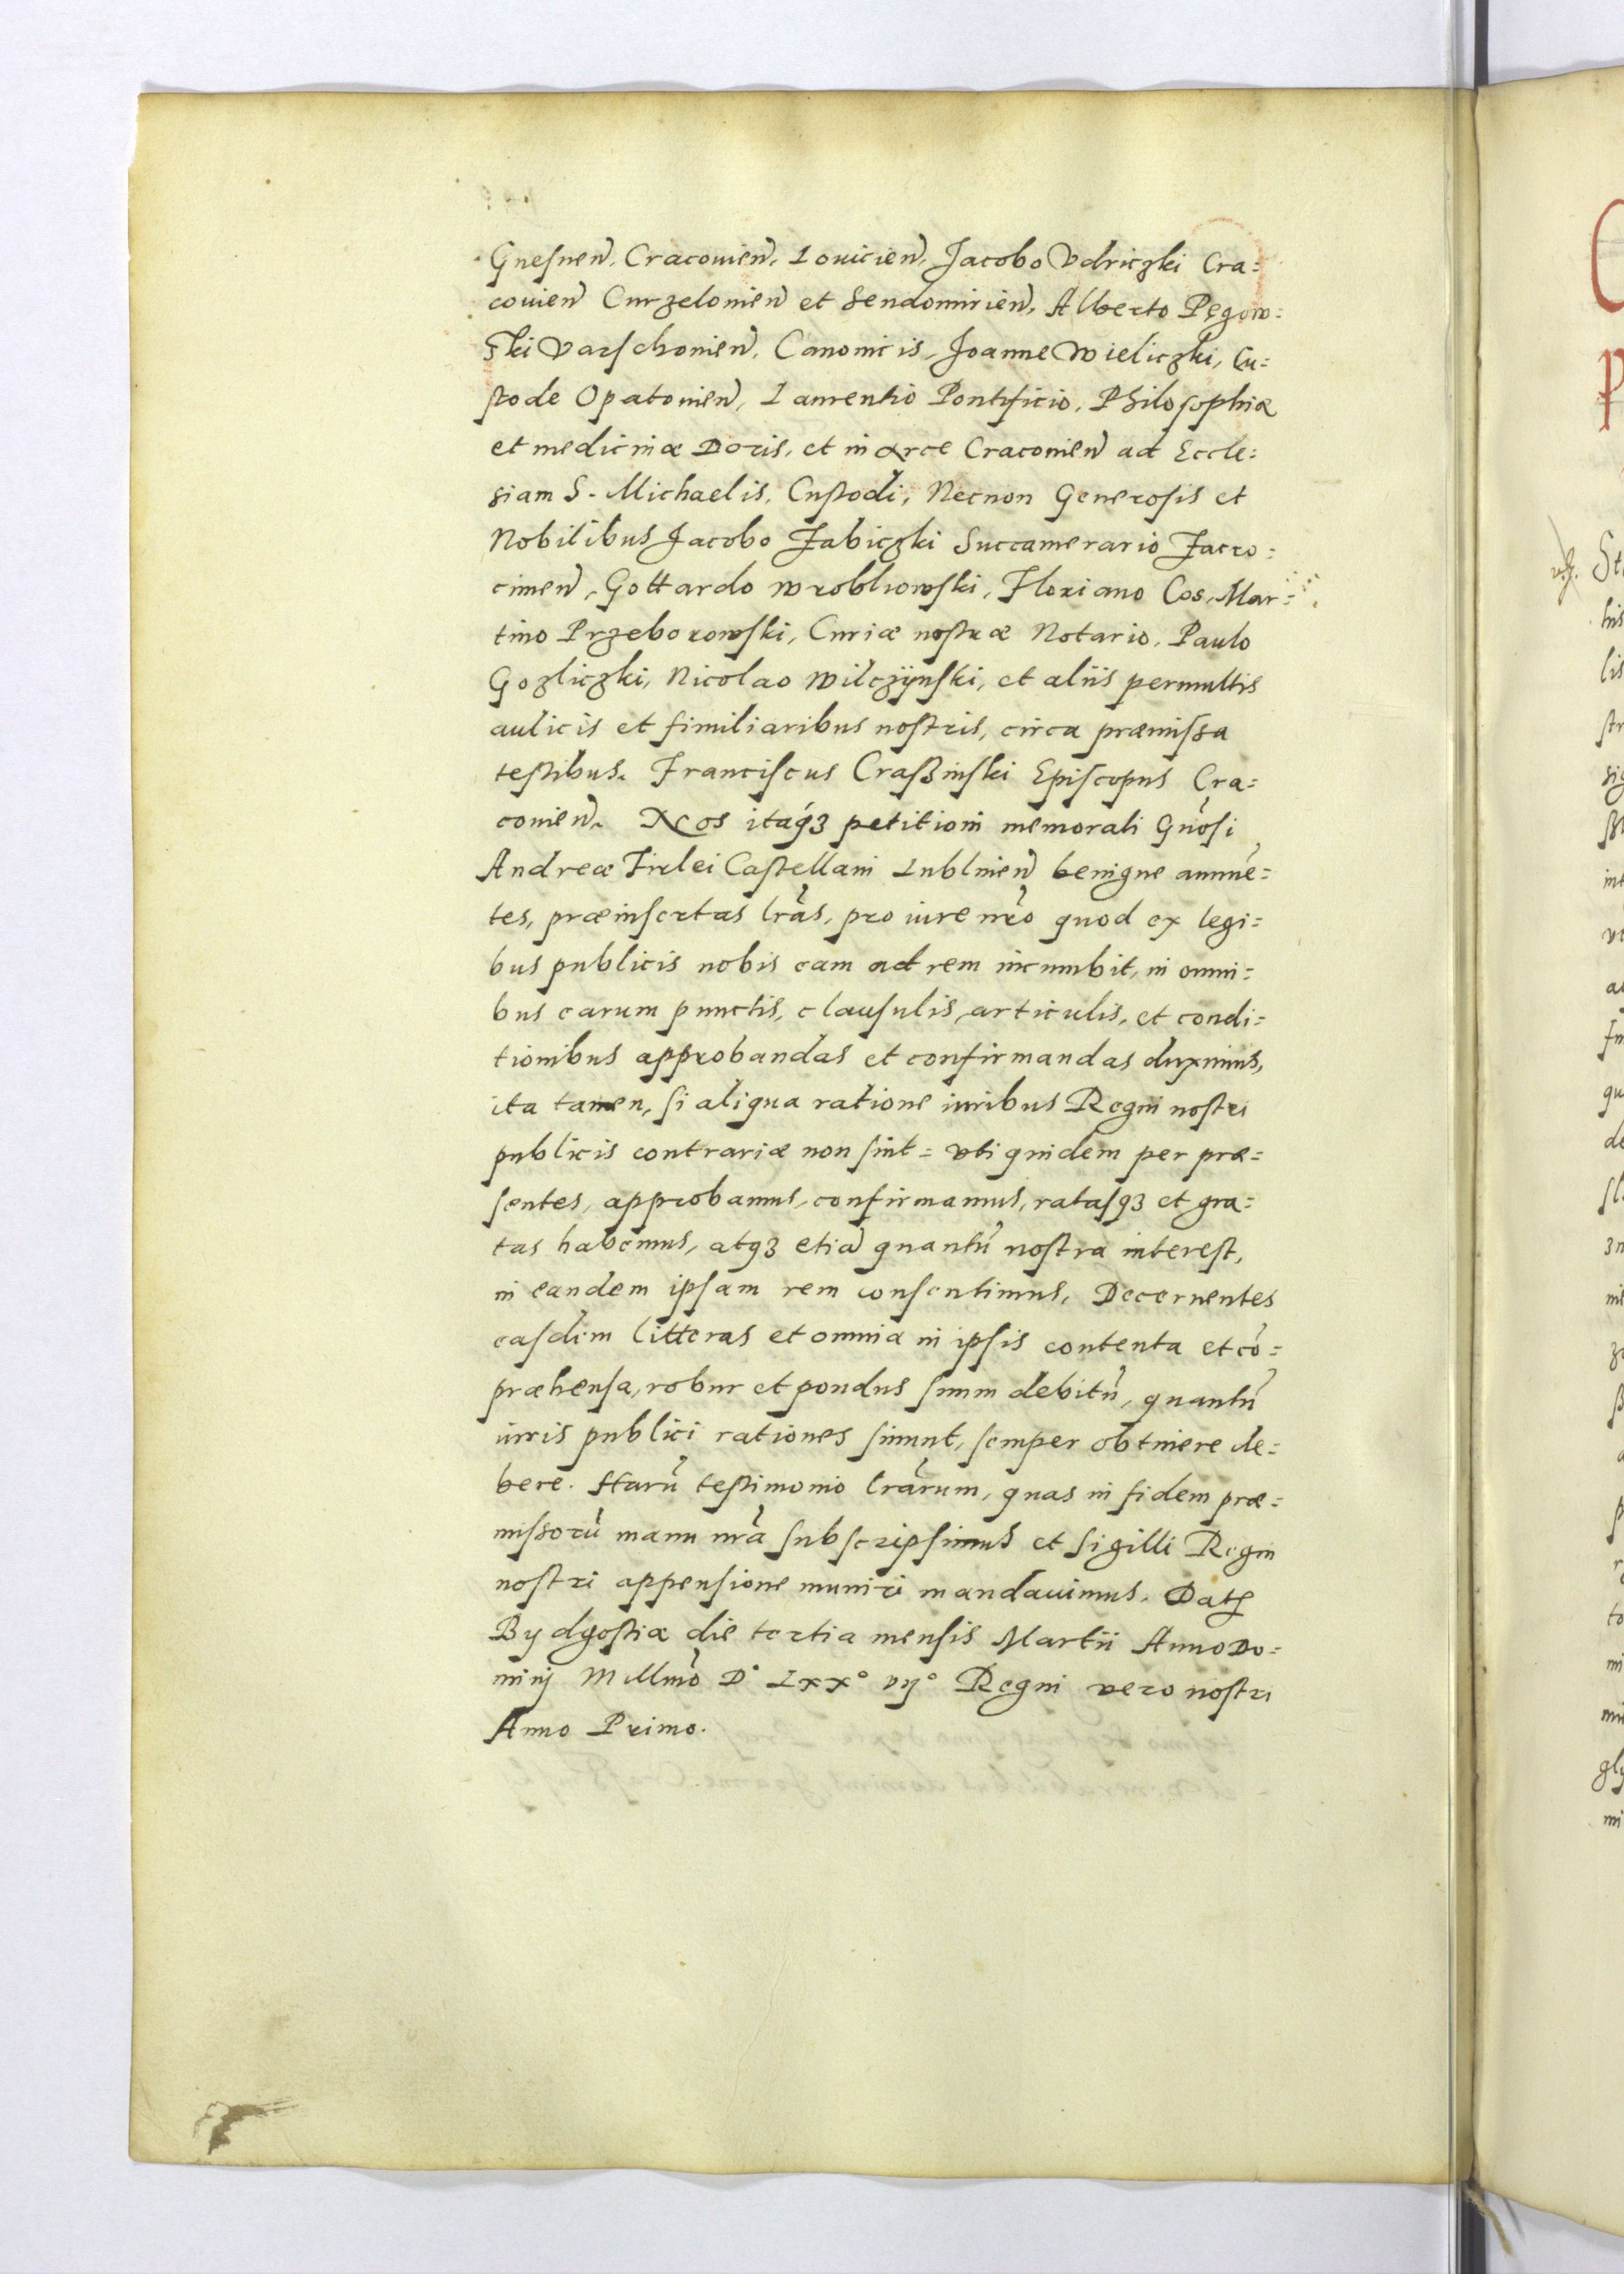 Gnesnen̄, Cracouien̄, Louicien̄, Jacobo Vdriczki Cra=
couien̄ Curzelouien̄ et Sendomirien̄, Alberto Pęgow=
ski Varschouien̄, Canonicis, Joanne Wieliczki, Cu=
stode Opatouien̄, Laurentio Pontificio, Philosophiæ
et medicinæ Doris, et in arce Cracouien̄ ad Eccle=
siam S. Michaelis, Custodi, Necnon Generosis et
Nobilibus Jacobo Zabiczki Succamerario Zacro=
cimen̄, Gottardo Wrobliowski, Floriano Cos, Mar=
tino Przeborowski, Curiæ nostræ Notario, Paulo
Gozliczki, Nicolao Wilczÿnski, et aliis permultis
aulicis et fimiliaribus nostris, circa præmissa
testibus. Franciscus Craßinski Episcopus Cra=
couien̄. Nos itaq́ꝫ petitioni memorati Gn̄osi
Andreæ Firlei Castellani Lublinen̄ benigne annuē=
tes, præinsertas lr̄as, pro iure nr̄o quod ex legi=
bus publicis nobis eam ad rem incumbit, in omni=
bus earum punctis, clausulis, articulis, et condi=
tionibus approbandas et confirmandas duximus,
ita tamen, si aliqua ratione iuribus Regni nostri
publicis contrariæ non sint= vti quidem per præ=
sentes, approbamus, confirmamus, ratasqꝫ et gra=
tas habemus, atqꝫ etiā quantū nostra interest,
in eandem ipsam rem consentimus, Decernentes
easdim litteras et omnia in ipsis contenta et cō=
præhensa, robur et pondus suum debitū, quantū
iuris publici rationes sinunt, semper obtinere de=
bere. Harū testimonio lr̄arum, quas in fidem præ=
missorū manu nr̄a subscripsimus et sigilli Regni
nostri appensione muniri mandauimus. Datꝭ
Bydgostiæ die tertia mensis Martii Anno Do=
minij Millmō D° Lxx° vij° Regni vero nostri
Anno Primo.